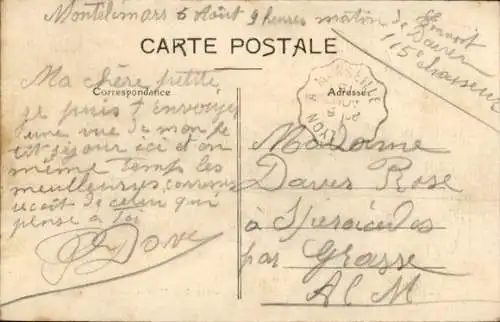 Montelimars 5 Août 9 heures matin
Daver
115e chasseur
CARTE POSTALE
Correspondance
Adresse
Ma chère petite,
je puis t envoyer
une vue de mon pe
tit séjour ici et en
même temps les
meilleurs
de celui qui
pense à Toi
Dove
LYON A MARSEILLE
Madame
Daver Rose
à Speracèdes
par Grasse
A M